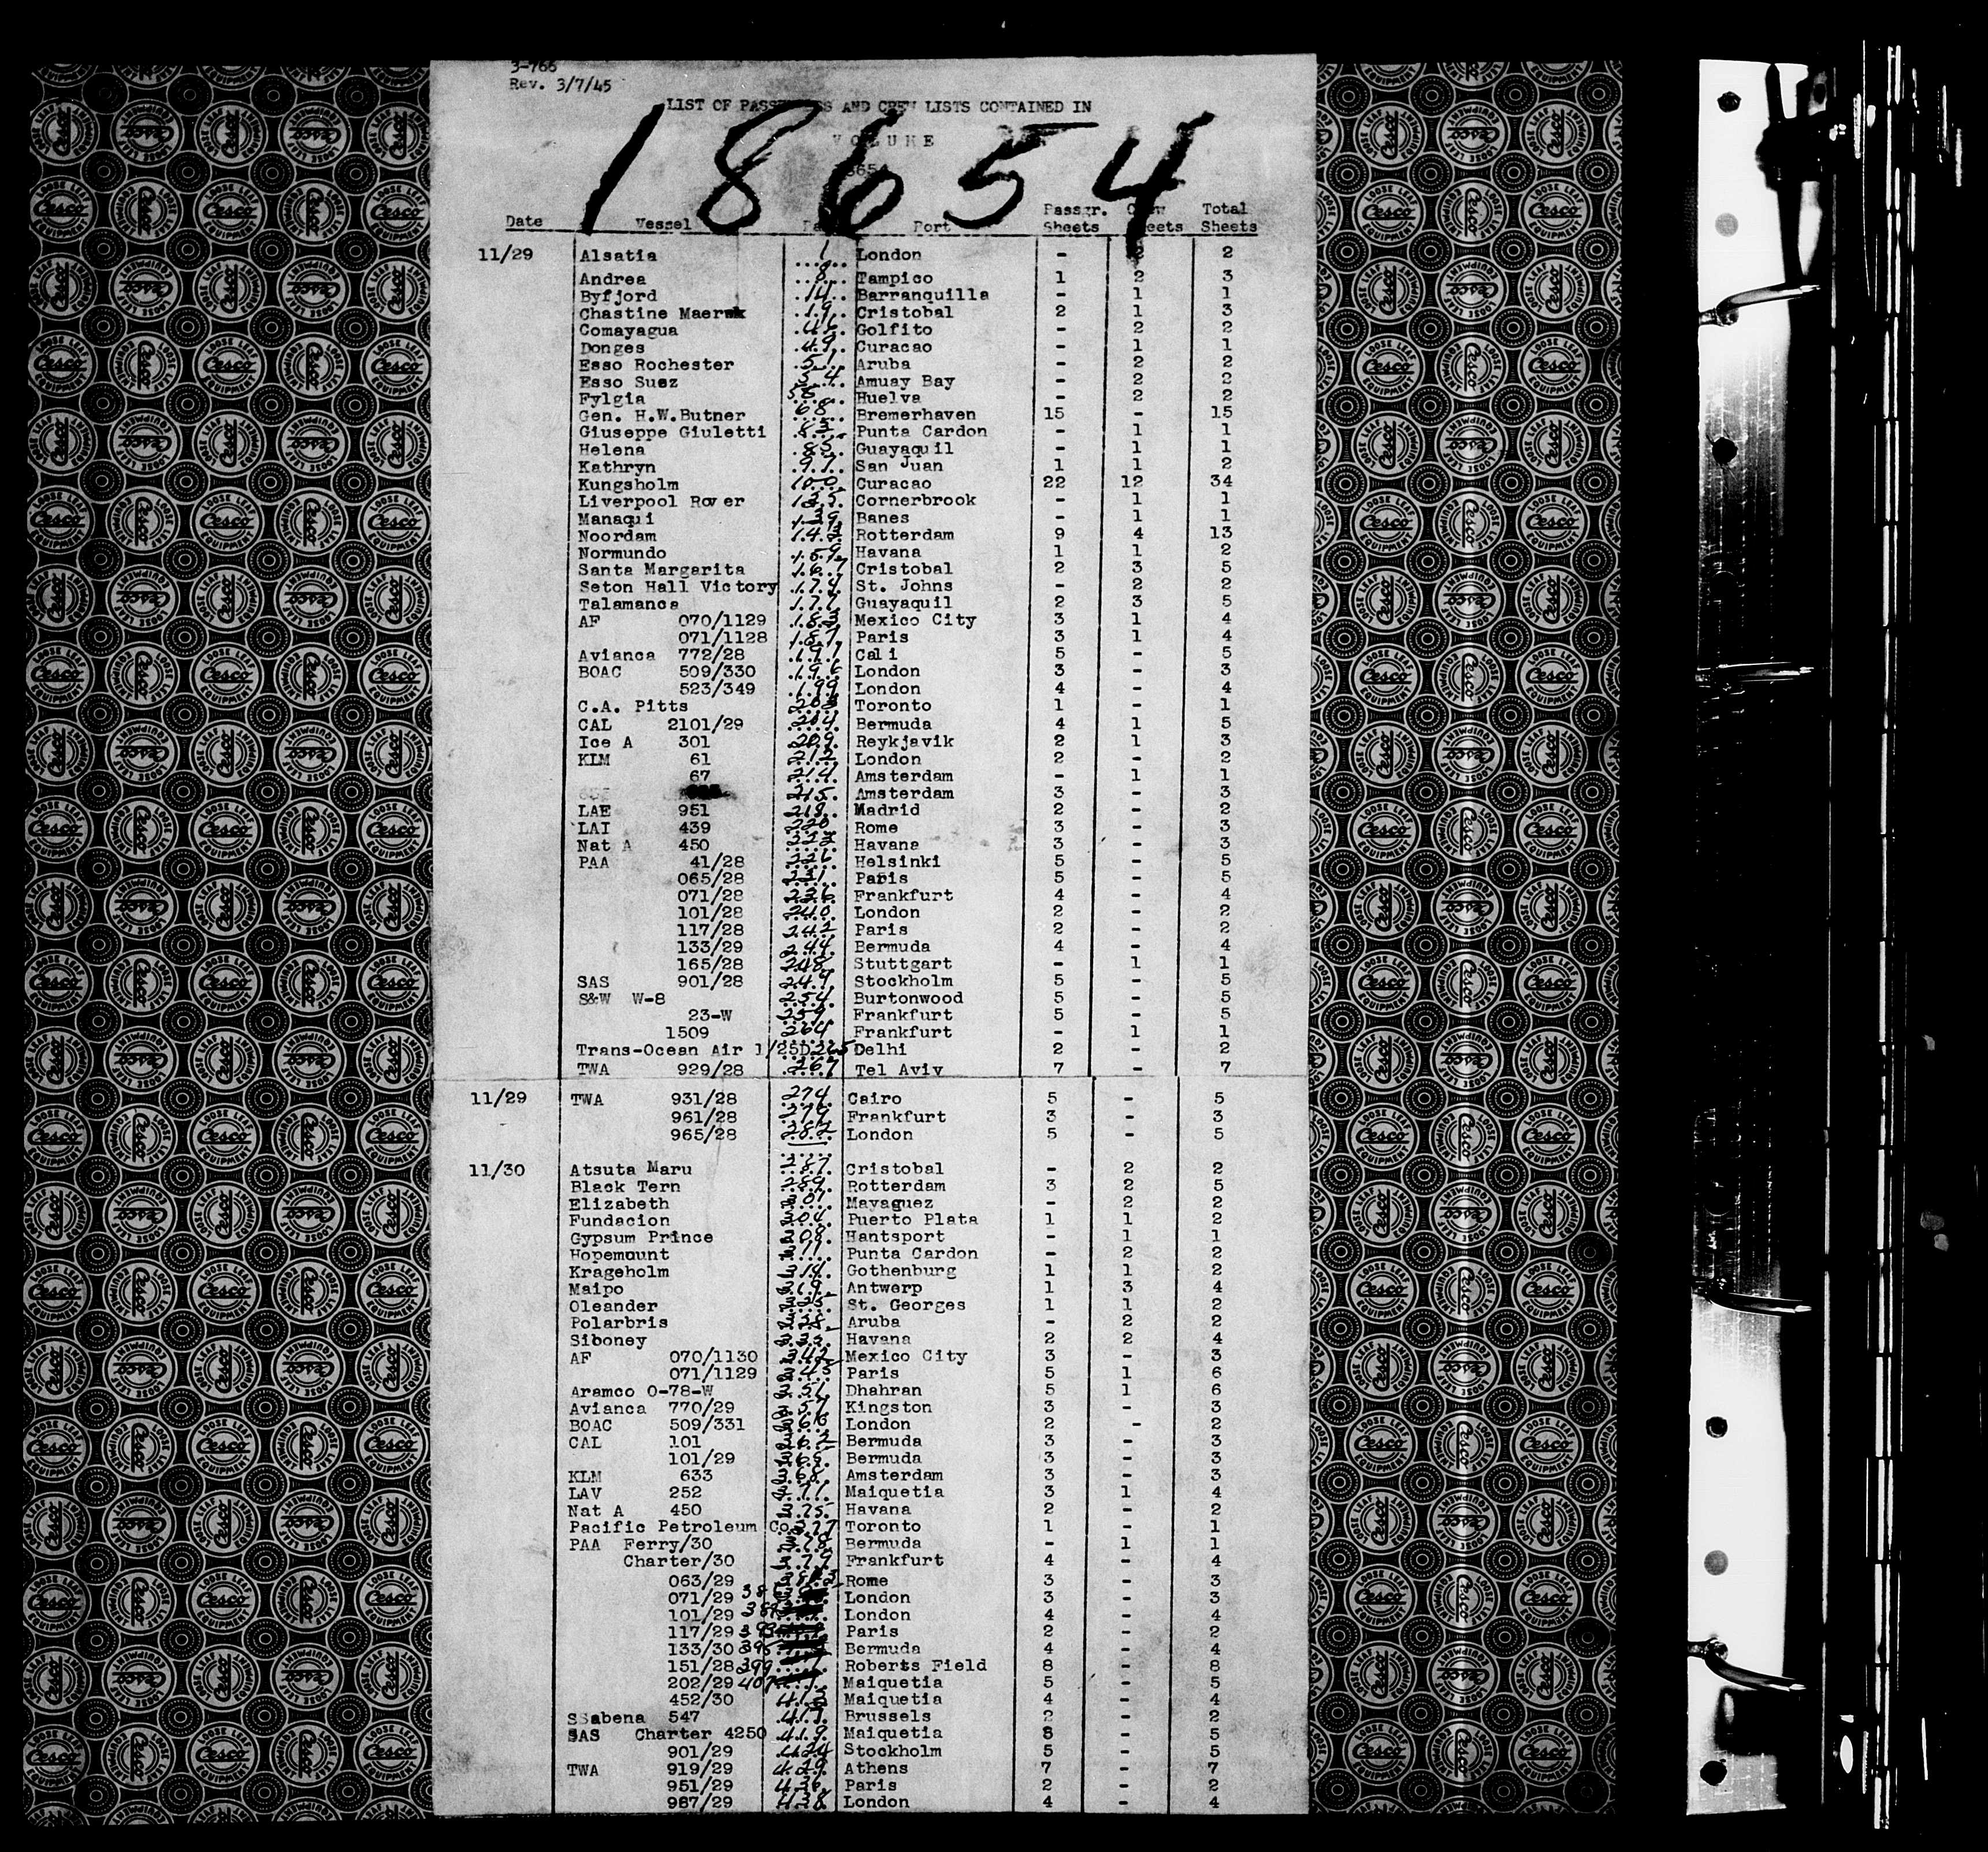 3-766
Rev. 3/7/45
LIST OF PASSENGERS AND CREW LISTS CONTAINED IN
VOLUME
18654
Date Vessel Port Passgr. Sheets Crew Sheets Total Sheets
11/29 Alsatia 1 London - 2 2
Andrea 8 Tampico 1 2 3
Byfjord 14 Barranquilla - 1 1
Chastine Maersk 19 Cristobal 2 1 3
Comayagua 46 Golfito - 2 2
Donges 49 Curacao - 1 1
Esso Rochester 51 Aruba - 2 2
Esso Suez 54 Amuay Bay - 2 2
Fylgia 58 Huelva - 2 2
Gen. H.W.Butner 68 Bremerhaven 15 - 15
Giuseppe Giuletti 83 Punta Cardon - 1 1
Helena 85 Guayaquil - 1 1
Kathryn 91 San Juan 1 1 2
Kungsholm 100 Curacao 22 12 34
Liverpool Rover 135 Cornerbrook - 1 1
Manaqui 139 Banes - 1 1
Noordam 143 Rotterdam 9 4 13
Normundo 159 Havana 1 1 2
Santa Margarita 167 Cristobal 2 3 5
Seton Hall Victory 174 St. Johns - 2 2
Talamanca 177 Guayaquil 2 3 5
AF 070/1129 183 Mexico City 3 1 4
071/1128 187 Paris 3 1 4
Avianca 772/28 Cali 5 - 5
BOAC 509/330 196 London 3 - 3
523/349 199 London 4 - 4
C.A. Pitts 203 Toronto 1 - 1
CAL 2101/29 204 Bermuda 4 1 5
Ice A 301 209 Reykjavik 2 1 3
KLM 61 212 London 2 - 2
67 214 Amsterdam - 1 1
215 Amsterdam 3 - 3
LAE 951 218 Madrid 2 - 2
LAI 439 220 Rome 3 - 3
Nat A 450 223 Havana 3 - 3
PAA 41/28 226 Helsinki 5 - 5
065/28 231 Paris 5 - 5
071/28 236 Frankfurt 4 - 4
101/28 240 London 2 - 2
117/28 242 Paris 2 - 2
133/29 244 Bermuda 4 - 4
165/28 248 Stuttgart - 1 1
SAS 901/28 249 Stockholm 5 - 5
S&W W-8 254 Burtonwood 5 - 5
23-W 259 Frankfurt 5 - 5
1509 264 Frankfurt - 1 1
Trans-Ocean Air 1/25D 265 Delhi 2 - 2
TWA 929/28 267 Tel Aviv 7 - 7
11/29 TWA 931/28 274 Cairo 5 - 5
961/28 279 Frankfurt 3 - 3
965/28 282 London 5 - 5
11/30 Atsuta Maru 287 Cristobal - 2 2
Black Tern 289 Rotterdam 3 2 5
Elizabeth 301 Mayaguez - 2 2
Fundacion 304 Puerto Plata 1 1 2
Gypsum Prince 308 Hantsport - 1 1
Hopemount 311 Punta Cardon - 2 2
Krageholm 314 Gothenburg 1 1 2
Maipo 319 Antwerp 1 3 4
Oleander 325 St. Georges 1 1 2
Polarbris 328 Aruba - 2 2
Siboney 335 Havana 2 2 4
AF 070/1130 342 Mexico City 3 - 3
071/1129 345 Paris 5 1 6
Aramco O-78-W 351 Dhahran 5 1 6
Avianca 770/29 357 Kingston 3 - 3
BOAC 509/331 London 2 - 2
CAL 101 362 Bermuda 3 - 3
101/29 365 Bermuda 3 - 3
KLM 633 368 Amsterdam 3 - 3
LAV 252 371 Maiquetia 3 1 4
Nat A 450 375 Havana 2 - 2
Pacific Petroleum Co 377 Toronto 1 - 1
PAA Ferry/30 378 Bermuda - 1 1
Charter/30 379 Frankfurt 4 - 4
063/29 Rome 3 - 3
071/29 London 3 - 3
101/29 389 London 4 - 4
117/29 393 Paris 2 - 2
133/30 395 Bermuda 4 - 4
151/28 399 Roberts Field 8 - 8
202/29 407 Maiquetia 5 - 5
452/30 413 Maiquetia 4 - 4
Sabena 547 417 Brussels 2 - 2
SAS Charter 4250 419 Maiquetia 5 - 5
901/29 424 Stockholm 5 - 5
TWA 919/29 429 Athens 7 - 7
951/29 436 Paris 2 - 2
987/29 438 London 4 - 4
LOOSE LEAF
Cesco
EQUIPMENT